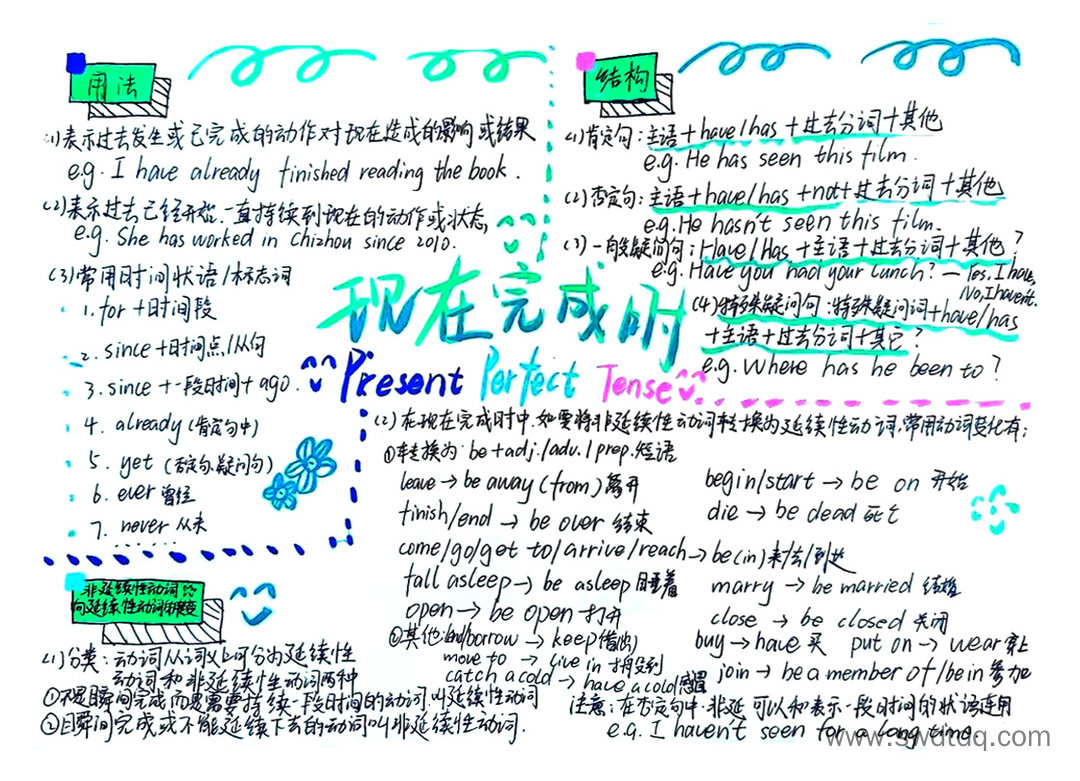 用法
(1)表示过去发生或已完成的动作对现在造成的影响或结果
e.g. I have already finished reading the book.
(2)表示过去已经开始,一直持续到现在的动作或状态
e.g. She has worked in Chizhou since 2010.
(3)常用时间状语/标志词
1. for +时间段
2. since +时间点/从句
3. since +一段时间+ ago.
4. already (肯定句中)
5. yet (否定句、疑问句)
6. ever 曾经
7. never 从未
结构
(1)肯定句:主语+have/has+过去分词+其他
e.g. He has seen this film.
(2)否定句:主语+have/has+not+过去分词+其他
e.g. He hasn't seen this film.
(3)一般疑问句:Have/Has+主语+过去分词+其他?
e.g. Have you had your lunch? — Yes, I have.
No, I haven't.
(4)特殊疑问句:特殊疑问词+have/has
+主语+过去分词+其它?
e.g. Where has he been to?
现在完成时
Present Perfect Tense
非延续性动词
向延续性动词转变
(1)分类:动词从词义上可分为延续性
动词和非延续性动词两种
①不是瞬间完成,而是需要持续一段时间的动词,叫延续性动词
②瞬间完成或不能延续下去的动词叫非延续性动词.
(2)在现在完成时中,如要将非延续性动词转换为延续性动词,常用动词变化有:
①转换为:be+adj./adv./prep.短语
leave → be away (from) 离开
begin/start → be on 开始
finish/end → be over 结束
die → be dead 死亡
come/go/get to/arrive/reach → be (in) 来/去/到达
fall asleep → be asleep 睡着
marry → be married 结婚
open → be open 打开
close → be closed 关闭
②其他:lend/borrow → keep(借出)
buy → have 买 put on → wear 穿上
move to → live in 搬到
join → be a member of/be in 参加
catch a cold → have a cold
注意:在否定句中,非延可以和表示一段时间的状语连用
e.g. I haven't seen for a long time.
www.swdtdq.com